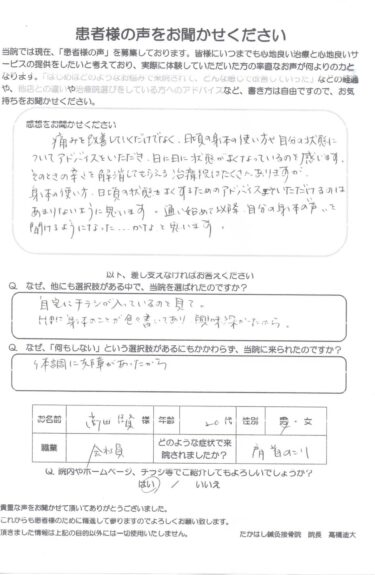 患者様の声をお聞かせください
当院では現在、「患者様の声」を募集しております。皆様にいつまでも心地良い治療と心地良いサ
ービスの提供をしたいと考えており、実際に体験していただいた方の率直なお声が何よりの力と
なります。「はじめはどのような悩みで来院されて、どんな感じで改善していった」などの経過
や、他店との違いや治療院選びをしている方へのアドバイスなど、書き方は自由ですので、お気
持ちをお聞かせください。
感想をお聞かせください
痛みを改善していくだけでなく、日頃の身体の使い方や自分の状態に
ついてアドバイスをいただき、日に日に状態がよくなっているのを感じます。
そのときの辛さを解消してもらえる治療院はたくさんありますが、
身体の使い方、日頃の状態をよくするためのアドバイスまでいただけるのは
あまりないように思います。通い始めて以降、自分の身体の声を
聞けるようになった…かなと思います。
以下、差し支えなければお答えください
Q なぜ、他にも選択肢がある中で、当院を選ばれたのですか？
自宅にチラシが入っているのを見て。
身体のことが色々書いてあり 興味深かったから。
Q なぜ、「何もしない」という選択肢があるにもかかわらず、当院に来られたのですか？
体調に支障があったから
お名前 様 年齢 20代 性別 男・女
職業 会社員 どのような症状で来院されましたか？ 肩首のこり
Q. 院内やホームページ、チラシ等でご紹介してもよろしいでしょうか？
はい / いいえ
貴重な声をお聞かせて頂いてありがとうございました。
これからも患者様のために精進して参りますのでよろしくお願い致します。
頂きました情報は上記の目的以外には一切使用いたしません。 たかはし鍼灸接骨院 院長 高橋迪大